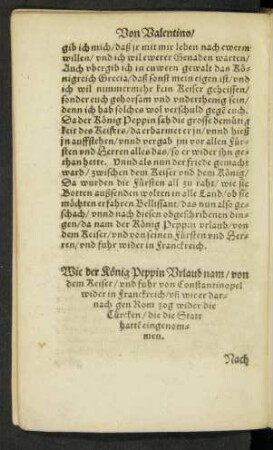 Von Valentino/
gib ich mich/ daß jr mit mir leben nach ewerm
willen/ vnd ich wil ewerer Genaden warten/
Auch vbergib ich in euwern gewalt das Kö-
nigreich Grecia/ daß sonst mein eigen ist/ vnd
ich wil nimmermehr kein Keiser geheissen/
sonder euch gehorsam vnd vnderthenig sein/
denn ich hab solches wol verschuld gegē euch.
Da der König Peppin sah die grosse demütig
keit des Keisers/ da erbarmet er jn/ vnnd hieß
jn auffstehen/ vnnd vergab jm vor allen Für-
sten vnd Herren alles das/ so er wider jhn ge-
than hette. Vnnd als nun der friede gemacht
ward/ zwischen dem Keiser vnd dem König/
Da wurden die Fürsten all zu raht/ wie sie
Botten außsenden wolten in alle Land/ ob sie
möchten erfahren Bellissant/ das nun also ge-
schach/ vnnd nach diesen obgeschribenen din-
gen/ da nam der König Peppin vrlaub von
dem Keiser/ vnd von seinen Fürsten vnd Her-
ren/ vnd fuhr wider in Franckreich.
Wie der König Peppin Vrlaub nam/ von
dem Keiser/ vnd fuhr von Constantinopel
wider in Franckreich/ vñ wie er dar-
nach gen Rom zog wider die
Türcken/ die die Statt
hattē eingenom-
men.
Nach